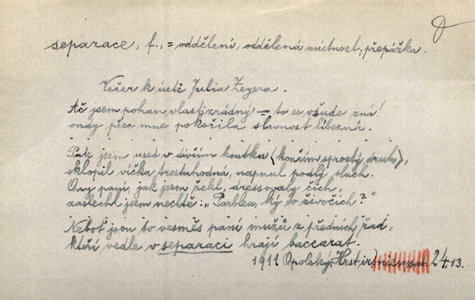 separace, f., = oddělení, oddělená místnost, přepážka.
Večer k úctě Julia Zeyera.
Ač jsem pohan vlastizrádný — to u všude zná!
ondy přec mne pokořila slavnost líbezná.
Pak jsem used v dívčím koutku (kouřím sprostý druh),
sklopil víčka trestuhodná, napnul podlý sluch.
Ony paní, jak jsem řekl, dressovaly čích,
zaslechl jsem nechtě: „Parbleu, ký to živočich?"
Neboť jsou to vesměs paní mužů z předních řad,
kteří vedle v separaci hrají baccarat.
1911 Opolský, Hrst 24. 13.